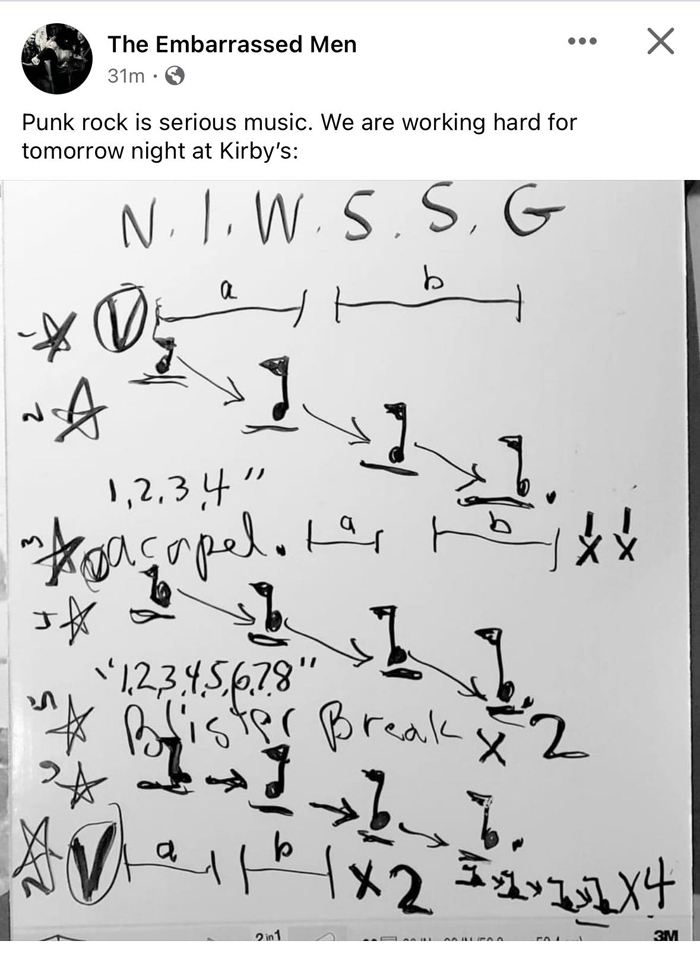 The Embarrassed Men
31m
Punk rock is serious music. We are working hard for
tomorrow night at Kirby's:
N. I. W. S. S. G
a b
1 V
2
1,2,3,4"
3 acapel. a b
4
"1,2,3,4,5,6,7,8"
5 Blister Break x 2
V a b x 2 x4
2in1 3M